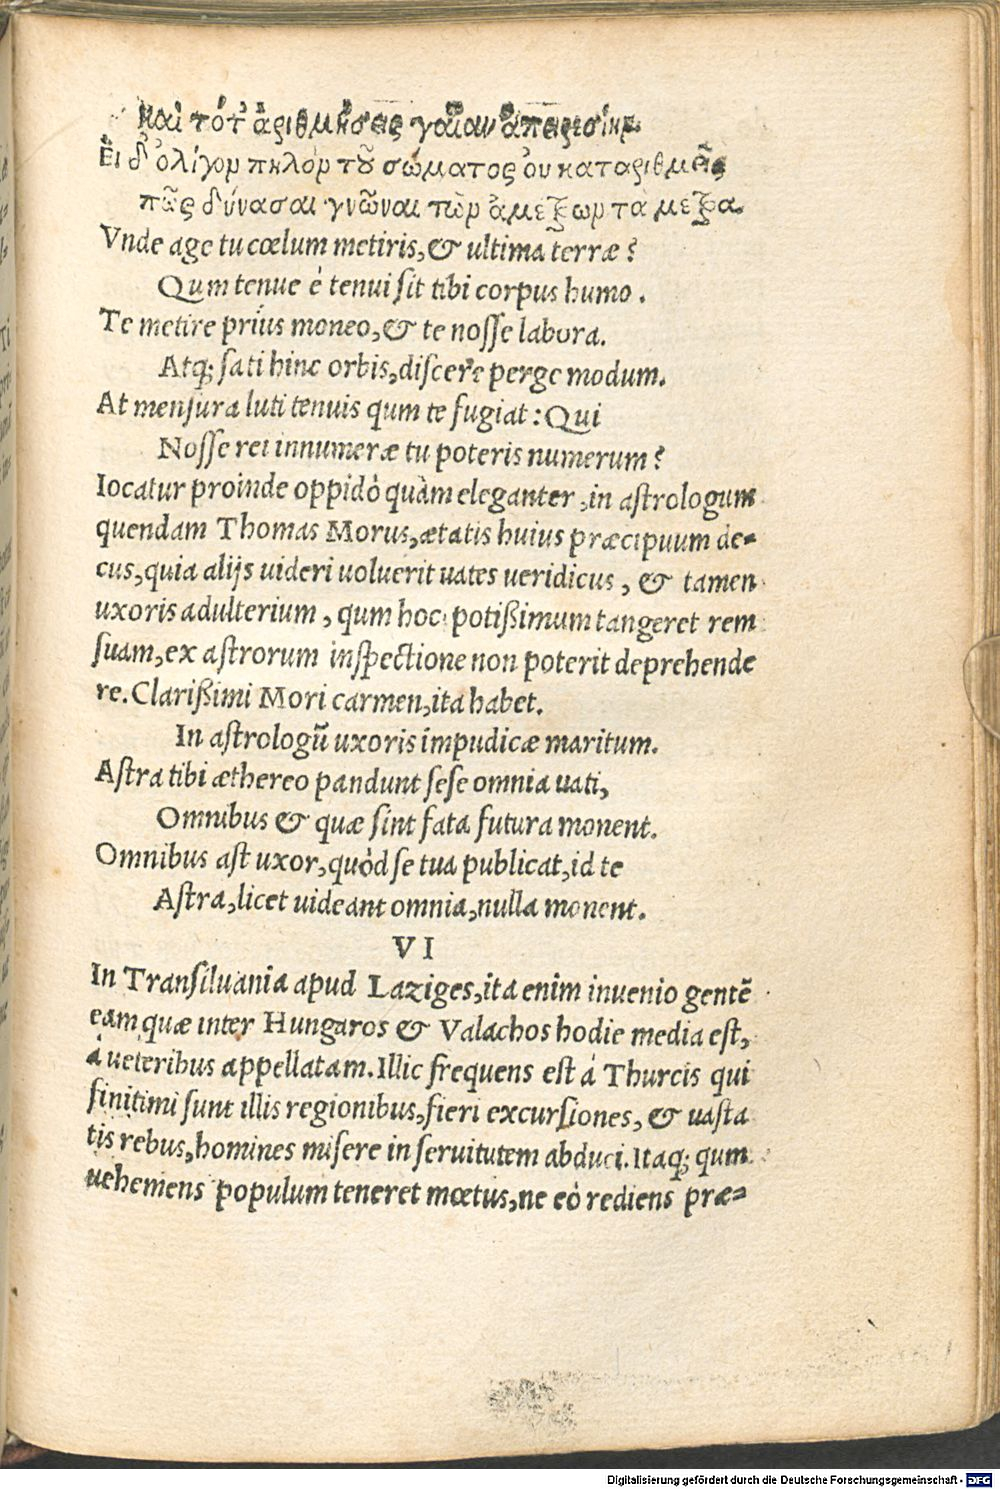 Καὶ τότ' ἀριθμήσεις γαῖαν ἀπειρεσίην.
Εἰ δ' ὀλίγον πηλὸν τοῦ σώματος οὐ καταριθμεῖς
πῶς δύνασαι γνῶναι τῶν ἀμέτρων τὰ μέτρα.
Vnde age tu cœlum metiris, & ultima terræ?
Qum tenue é tenui sit tibi corpus humo.
Te metire priùs moneo, & te nosse labora.
Atq; sati hinc orbis, discere perge modum.
At mensura luti tenuis qum te fugiat: Qui
Nosse rei innumeræ tu poteris numerum?
Iocatur proinde oppidò quàm eleganter, in astrologum
quendam Thomas Morus, ætatis huius præcipuum de=
cus, quia alijs uideri uoluerit uates ueridicus, & tamen
uxoris adulterium, qum hoc potißimum tangeret rem
suam, ex astrorum inspectione non poterit deprehende
re. Clarißimi Mori carmen, ita habet.
In astrologũ uxoris impudicæ maritum.
Astra tibi æthereo pandunt sese omnia uati,
Omnibus & quæ sint fata futura monent.
Omnibus ast uxor, quòd se tua publicat, id te
Astra, licet uideant omnia, nulla monent.
VI
In Transiluania apud Laziges, ita enim inuenio gentẽ
eam quæ inter Hungaros & Valachos hodie media est,
á ueteribus appellatam. Illic frequens est á Thurcis qui
finitimi sunt illis regionibus, fieri excursiones, & uasta
tis rebus, homines misere in seruitutem abduci. Itaq; qum
uehemens populum teneret mœtus, ne eò rediens præ=
Digitalisierung gefördert durch die Deutsche Forschungsgemeinschaft - DFG